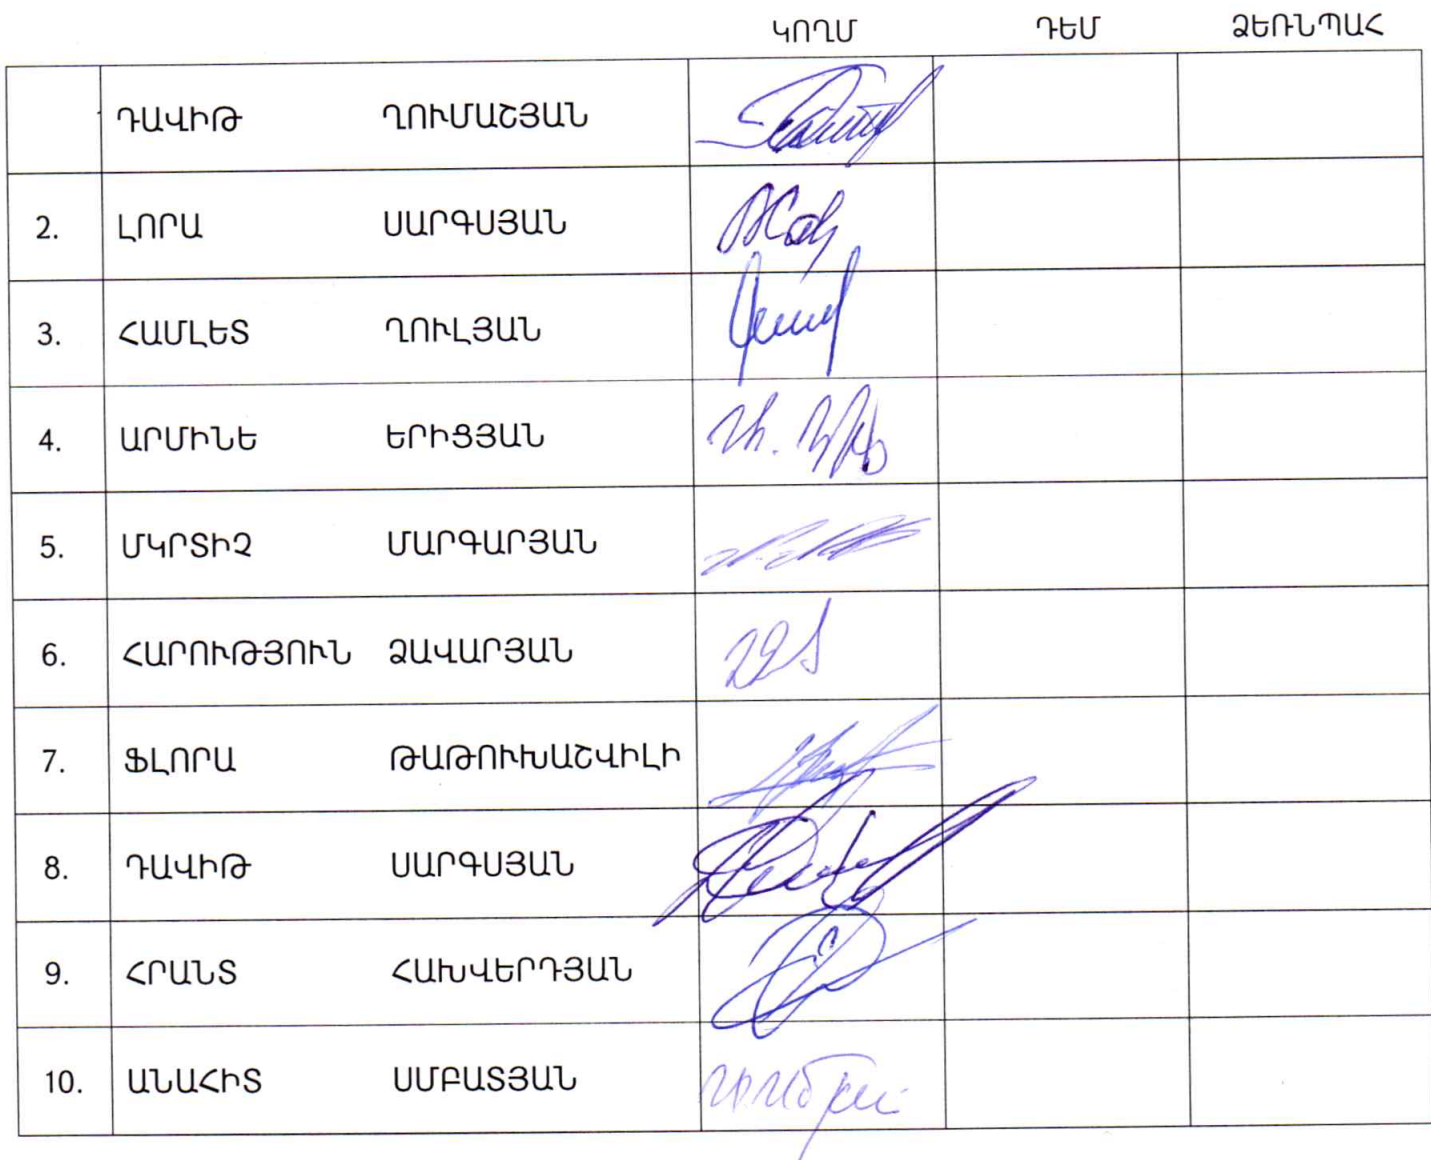 ԿՈՂՄ ԴԵՄ ՁԵՌՆՊԱՀ
ԴԱՎԻԹ ՂՈՒՄԱՇՅԱՆ
2. ԼՈՐԱ ՍԱՐԳՍՅԱՆ
3. ՀԱՄԼԵՏ ՂՈՒԼՅԱՆ
4. ԱՐՄԻՆԵ ԵՐԻՑՅԱՆ
5. ՄԿՐՏԻՉ ՄԱՐԳԱՐՅԱՆ
6. ՀԱՐՈՒԹՅՈՒՆ ՁԱՎԱՐՅԱՆ
7. ՖԼՈՐԱ ԹԱԹՈՒԽԱՇՎԻԼԻ
8. ԴԱՎԻԹ ՍԱՐԳՍՅԱՆ
9. ՀՐԱՆՏ ՀԱԽՎԵՐԴՅԱՆ
10. ԱՆԱՀԻՏ ՍՄԲԱՏՅԱՆ